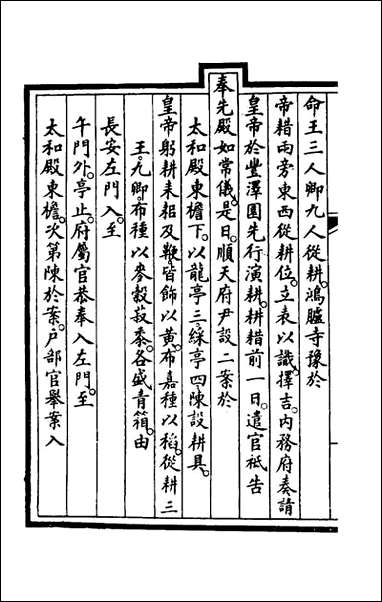 命王三人卿九人從耕。鴻臚寺豫於
帝耤兩旁東西從耕位。立表以識。擇吉。内務府奏請
皇帝於豐澤園先行演耕。耕耤前一日。遣官祇告
奉先殿如常儀。是日。順天府尹設二案於
太和殿東檐下。以龍亭三。綵亭四。陳設耕具。
皇帝躬耕耒耜及鞭。皆飾以黄。布嘉種以稻。從耕三
王。九卿。布種以麥穀菽黍。各盛青箱。由
長安左門入。至
午門外。亭止。府屬官恭奉入左門。至
太和殿東檐。次第陳於案。户部官舉案入